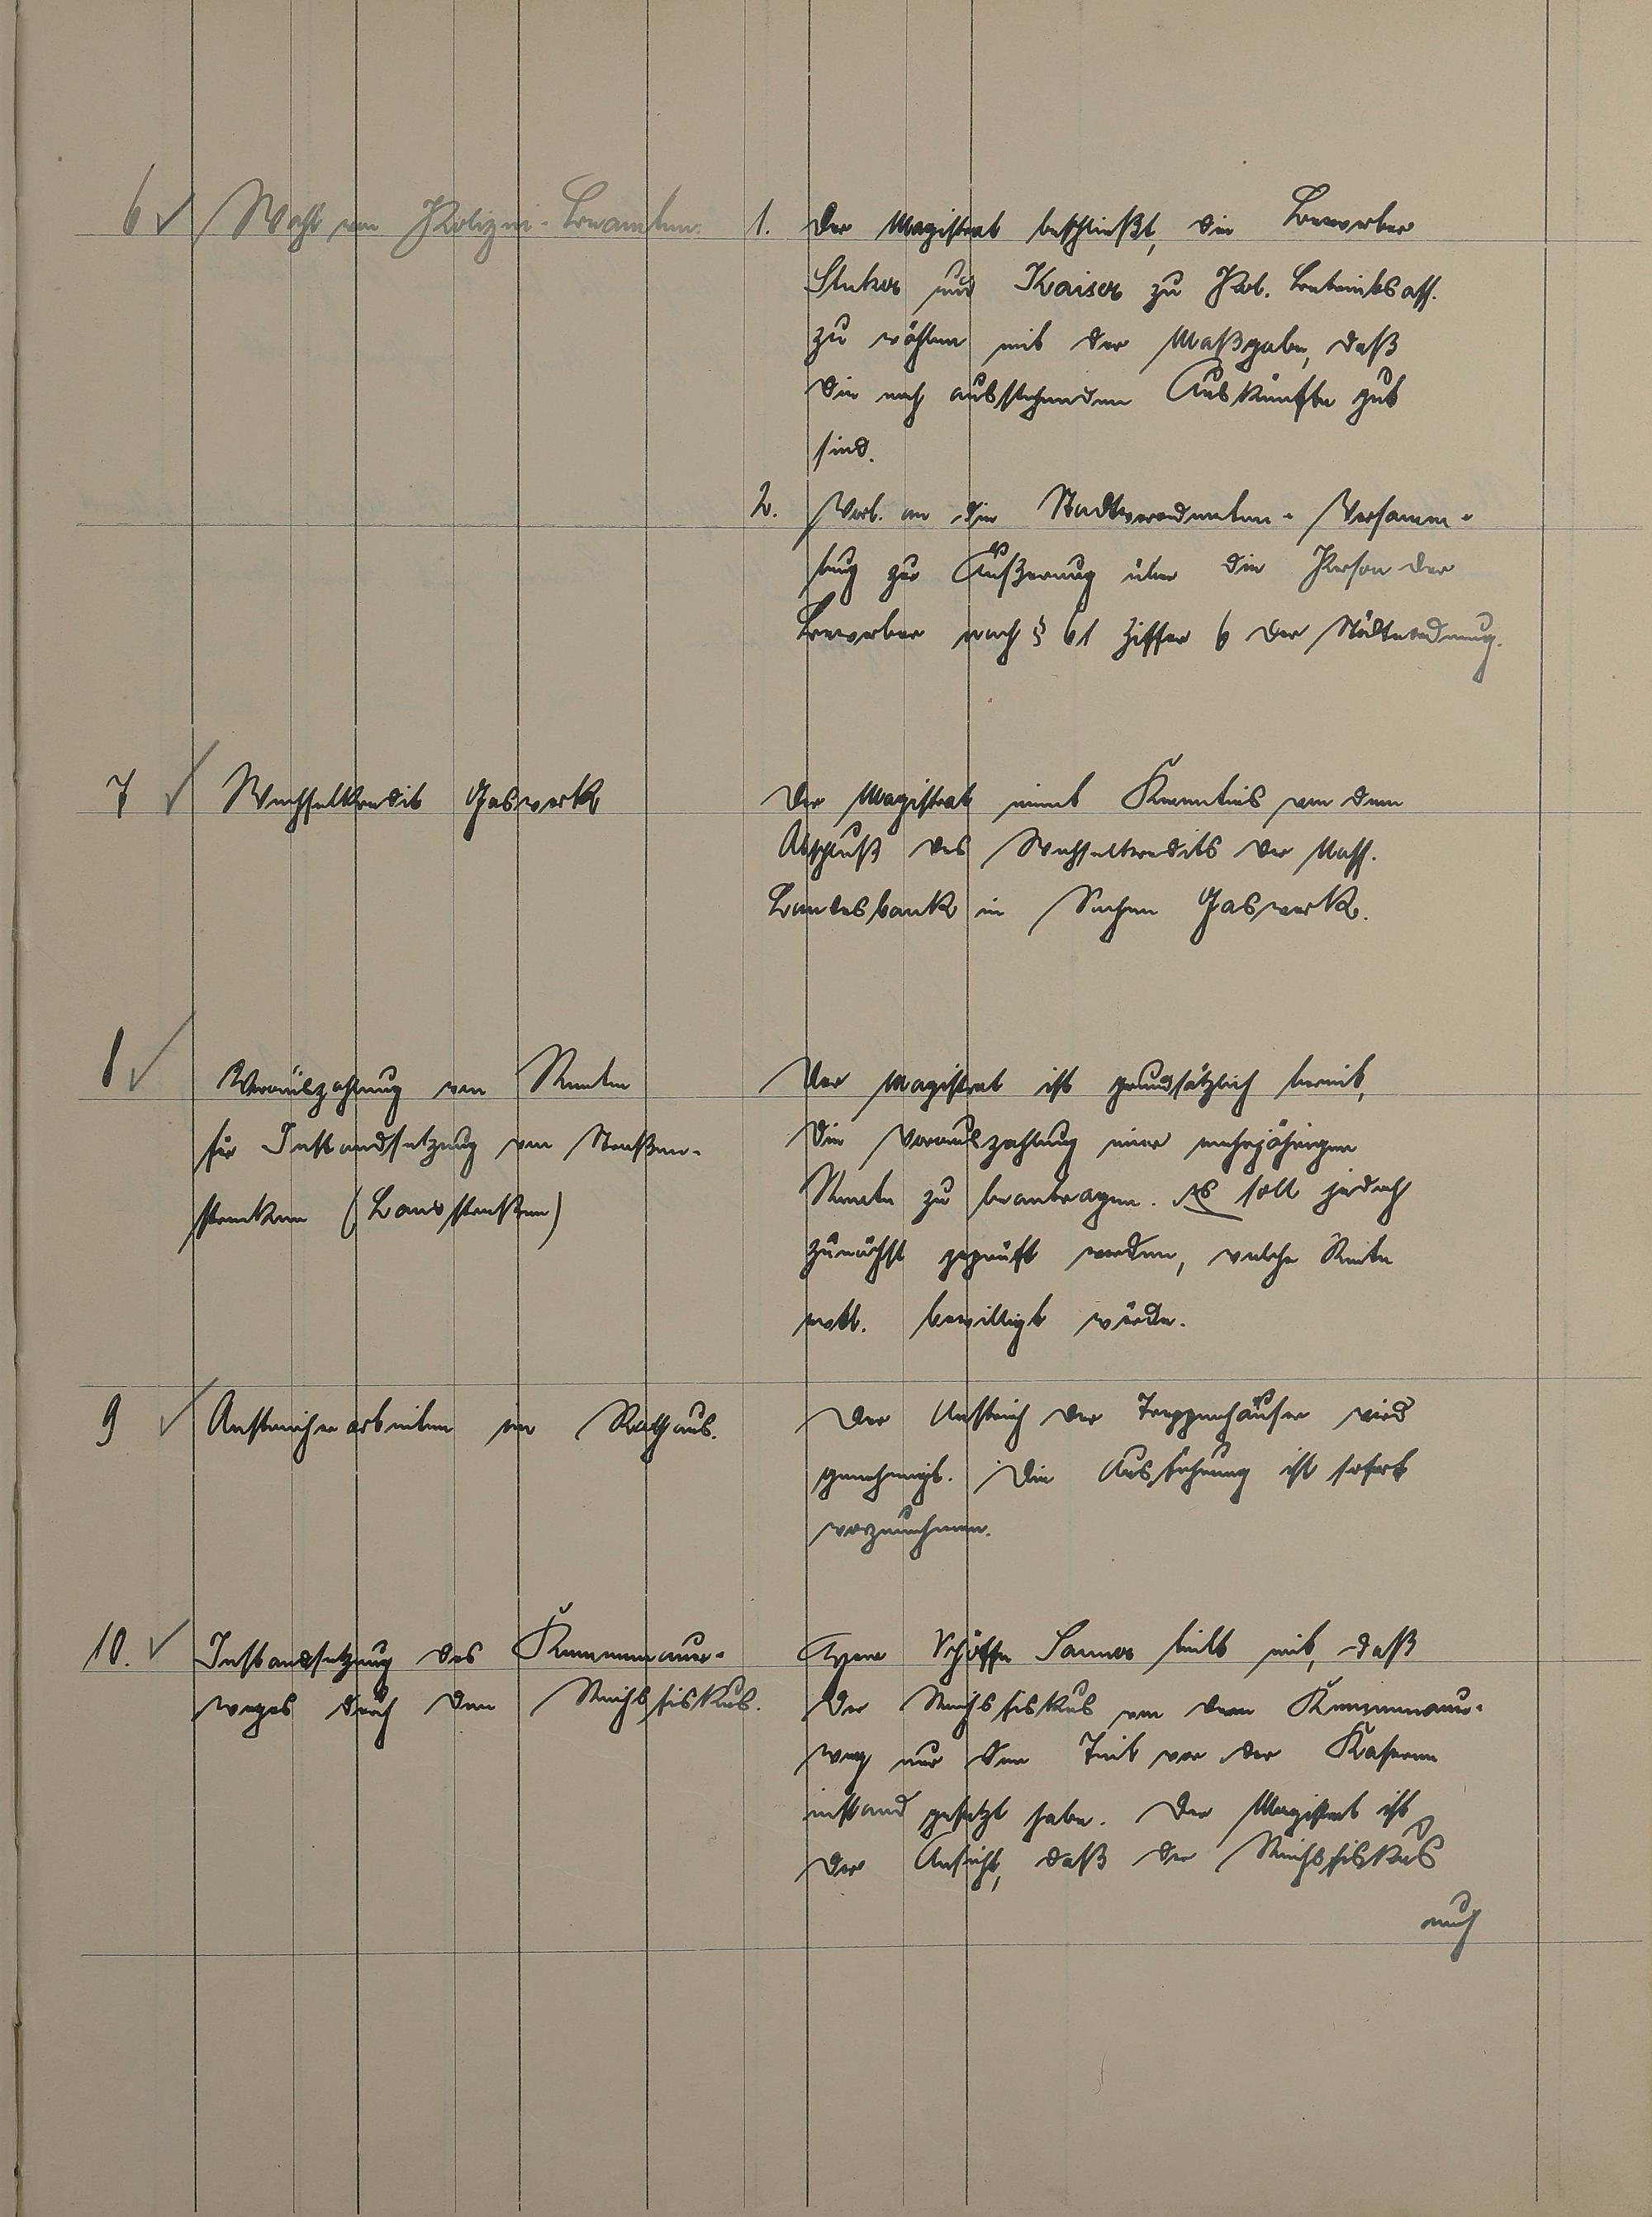 6 ✓ Wahl von Polizei-Beamten.
1. Der Magistrat beschließt, die Bewerber
und Kaiser zu Pol. Betriebsass.
zu wählen mit der Maßgabe, daß
die noch ausstehenden Auskünfte gut
sind.
2. Vorl. an die Stadtverordneten-Versamm-
lung zur Äußerung über die Person der
Bewerber nach § 61 Ziffer 6 der Städteordnung.
7 ✓ Wechselkredit Gaswerk
Der Magistrat nimmt Kenntnis von dem
Abschluß des Wechselkredits der Nass.
Landesbank in Sachen Gaswerk.
8 ✓ Vorauszahlung von Renten
für Instandsetzung von Straßen-
strecken (Landstraßen)
Der Magistrat ist grundsätzlich bereit,
die Vorauszahlung einer mehrjährigen
Rente zu beantragen. Es soll jedoch
zunächst geprüft werden, welche Rente
evtl. bewilligt würde.
9 ✓ Anstreicherarbeiten im Rathaus.
Der Anstrich der Treppenhäuser wird
genehmigt. Die Ausführung ist sofort
vorzunehmen.
10. ✓ Instandsetzung des
weges durch den Reichsfiskus.
Herr Schöffe Sauer teilt mit, daß
der Reichsfiskus von dem
weg nur den Teil vor der Kaserne
instand gesetzt habe. Der Magistrat ist
der Ansicht, daß der Reichsfiskus
auch